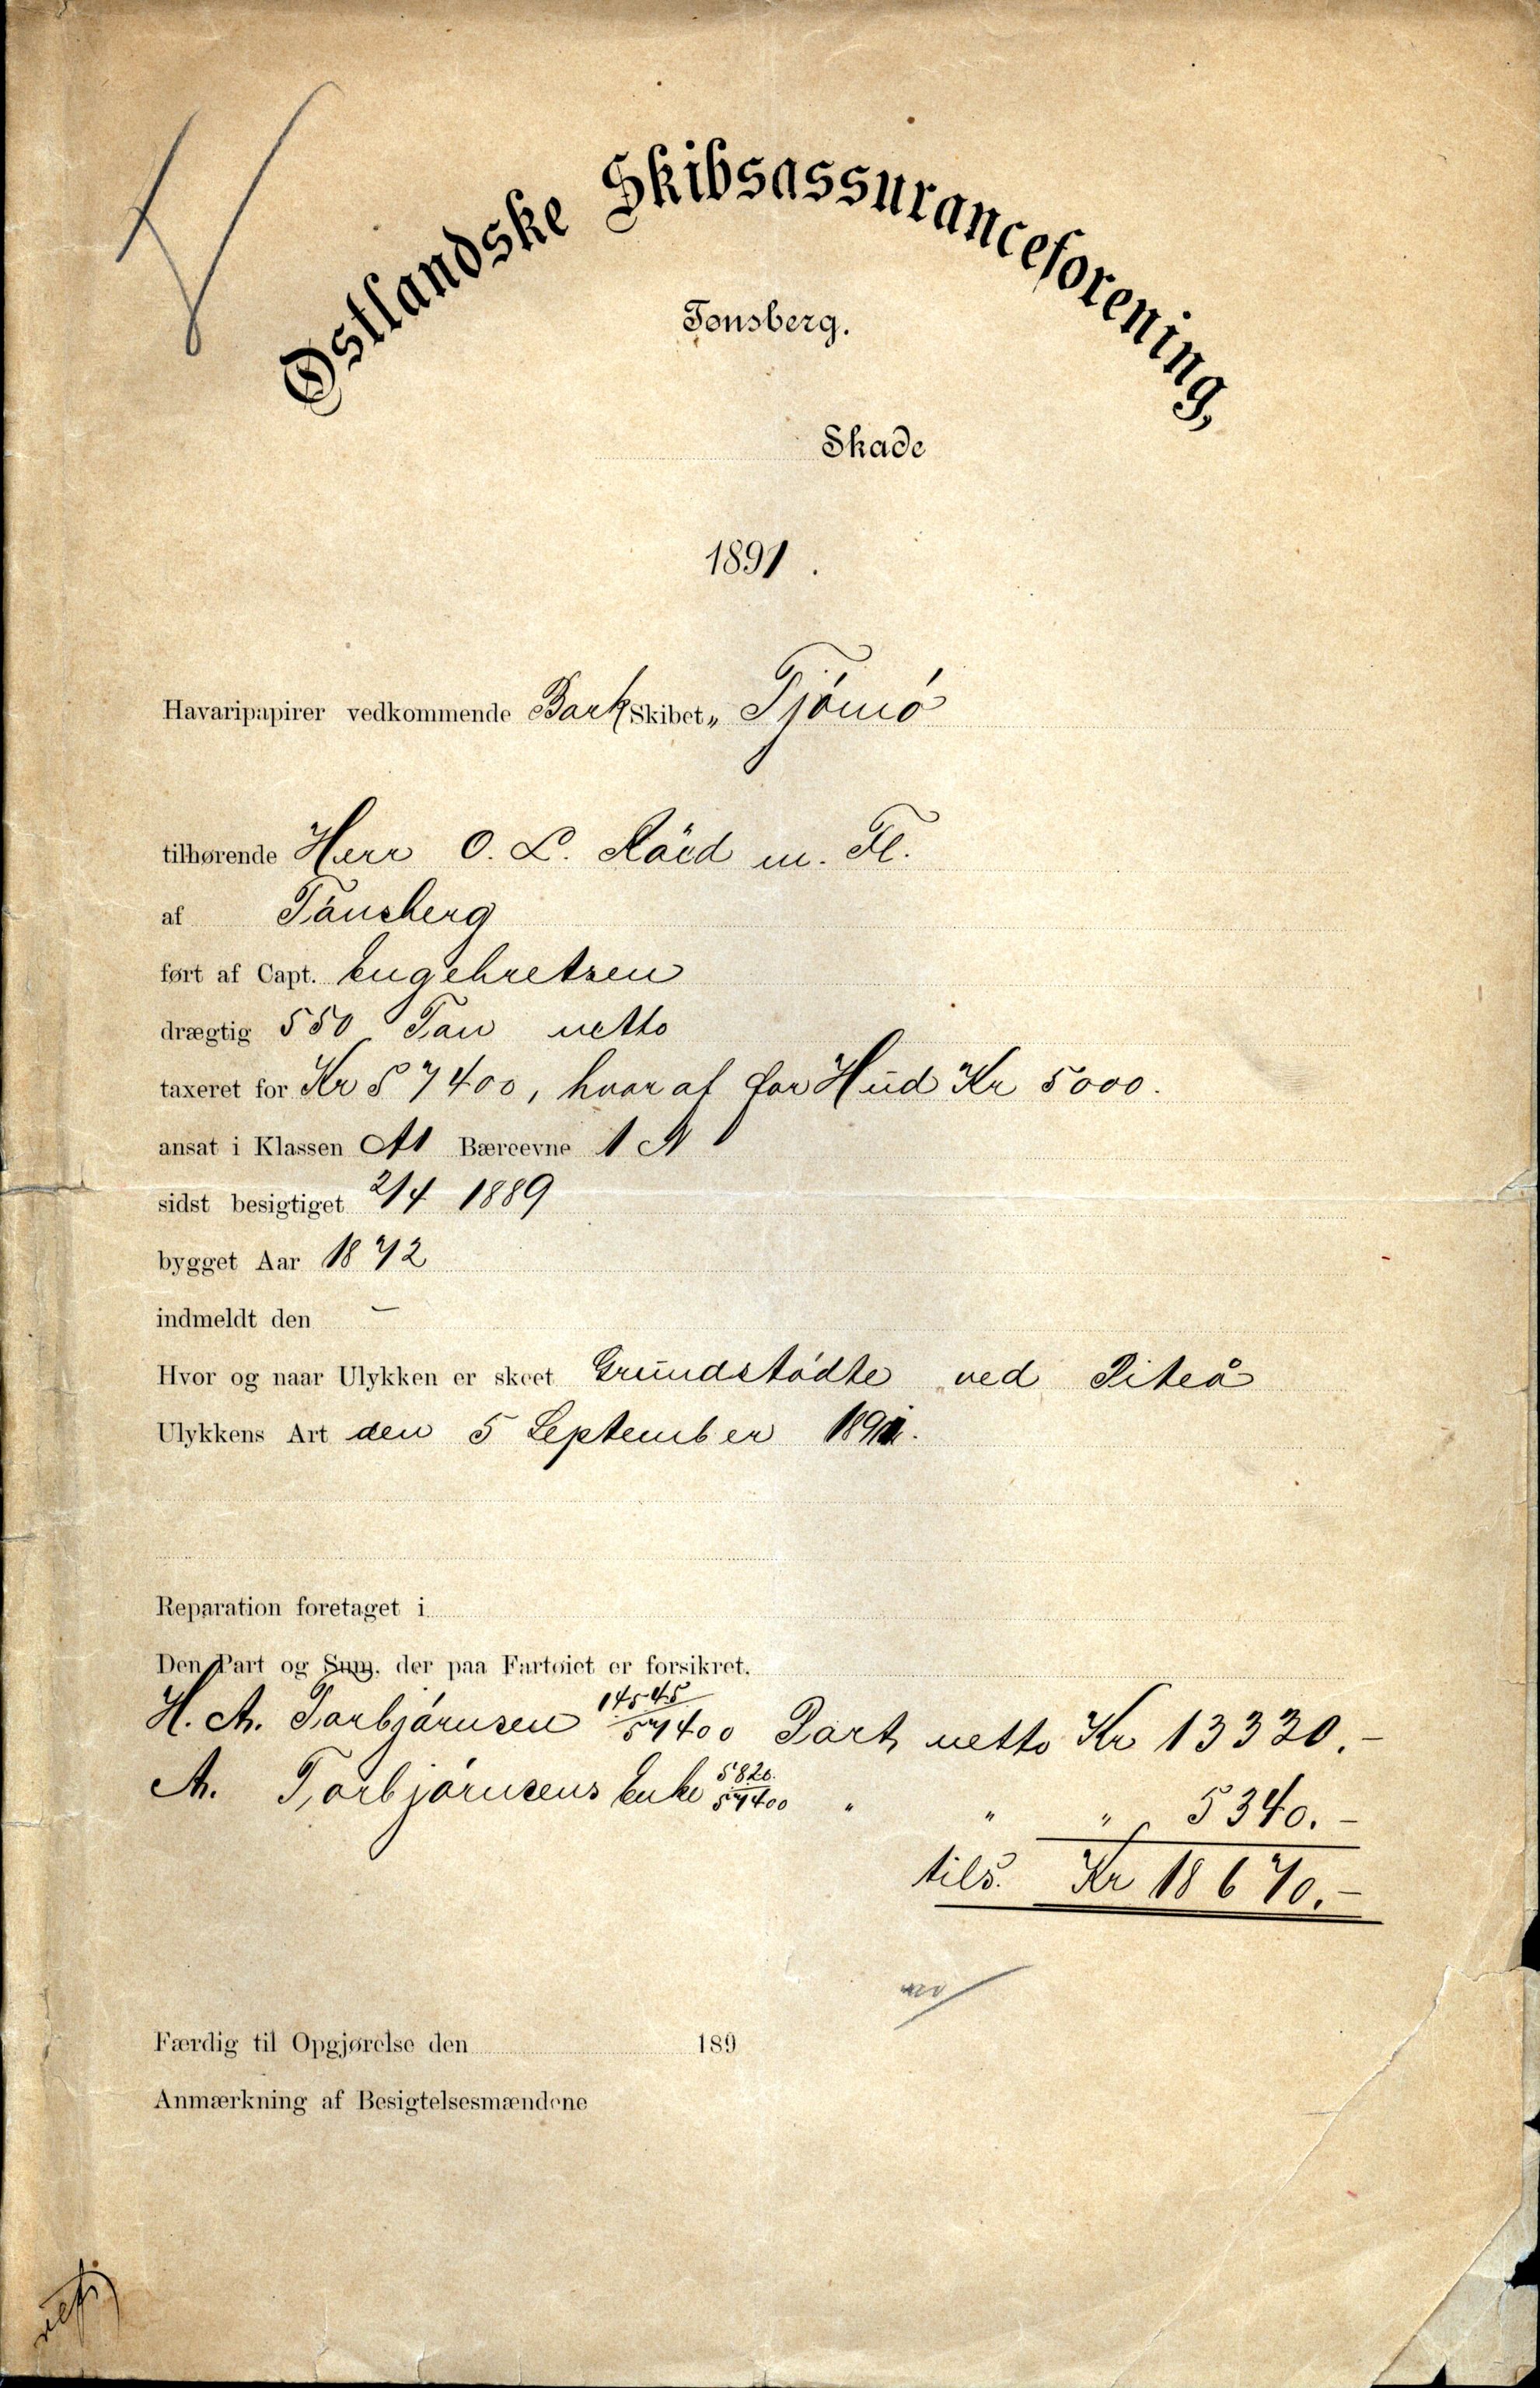 Østlandske Skibsassuranceforening,
Tønsberg.
Skade
1891.
Havaripapirer vedkommende Bark Skibet „ Tjömö
tilhørende Herr O. L. Röed m. Fl.
af Tönsberg
ført af Capt. Engebretsen
drægtig 550 Ton netto
taxeret for Kr 57400, hvoraf for Hud Kr 5000.
ansat i Klassen A1 Bæreevne 1 N
sidst besigtiget 2/4 1889
bygget Aar 1872
indmeldt den –
Hvor og naar Ulykken er skeet Grundstödte ved Piteå
Ulykkens Art den 5 September 1891.
Reparation foretaget i
Den Part og Sum, der paa Fartøiet er forsikret.
H. A. Torbjörnsen 14545/57400 Part, netto Kr 13330.–
A. Torbjörnsens Enke 5826/57400 " " " 5340.–
tils. Kr 18670.–
Færdig til Opgjørelse den 189
Anmærkning af Besigtelsesmændene